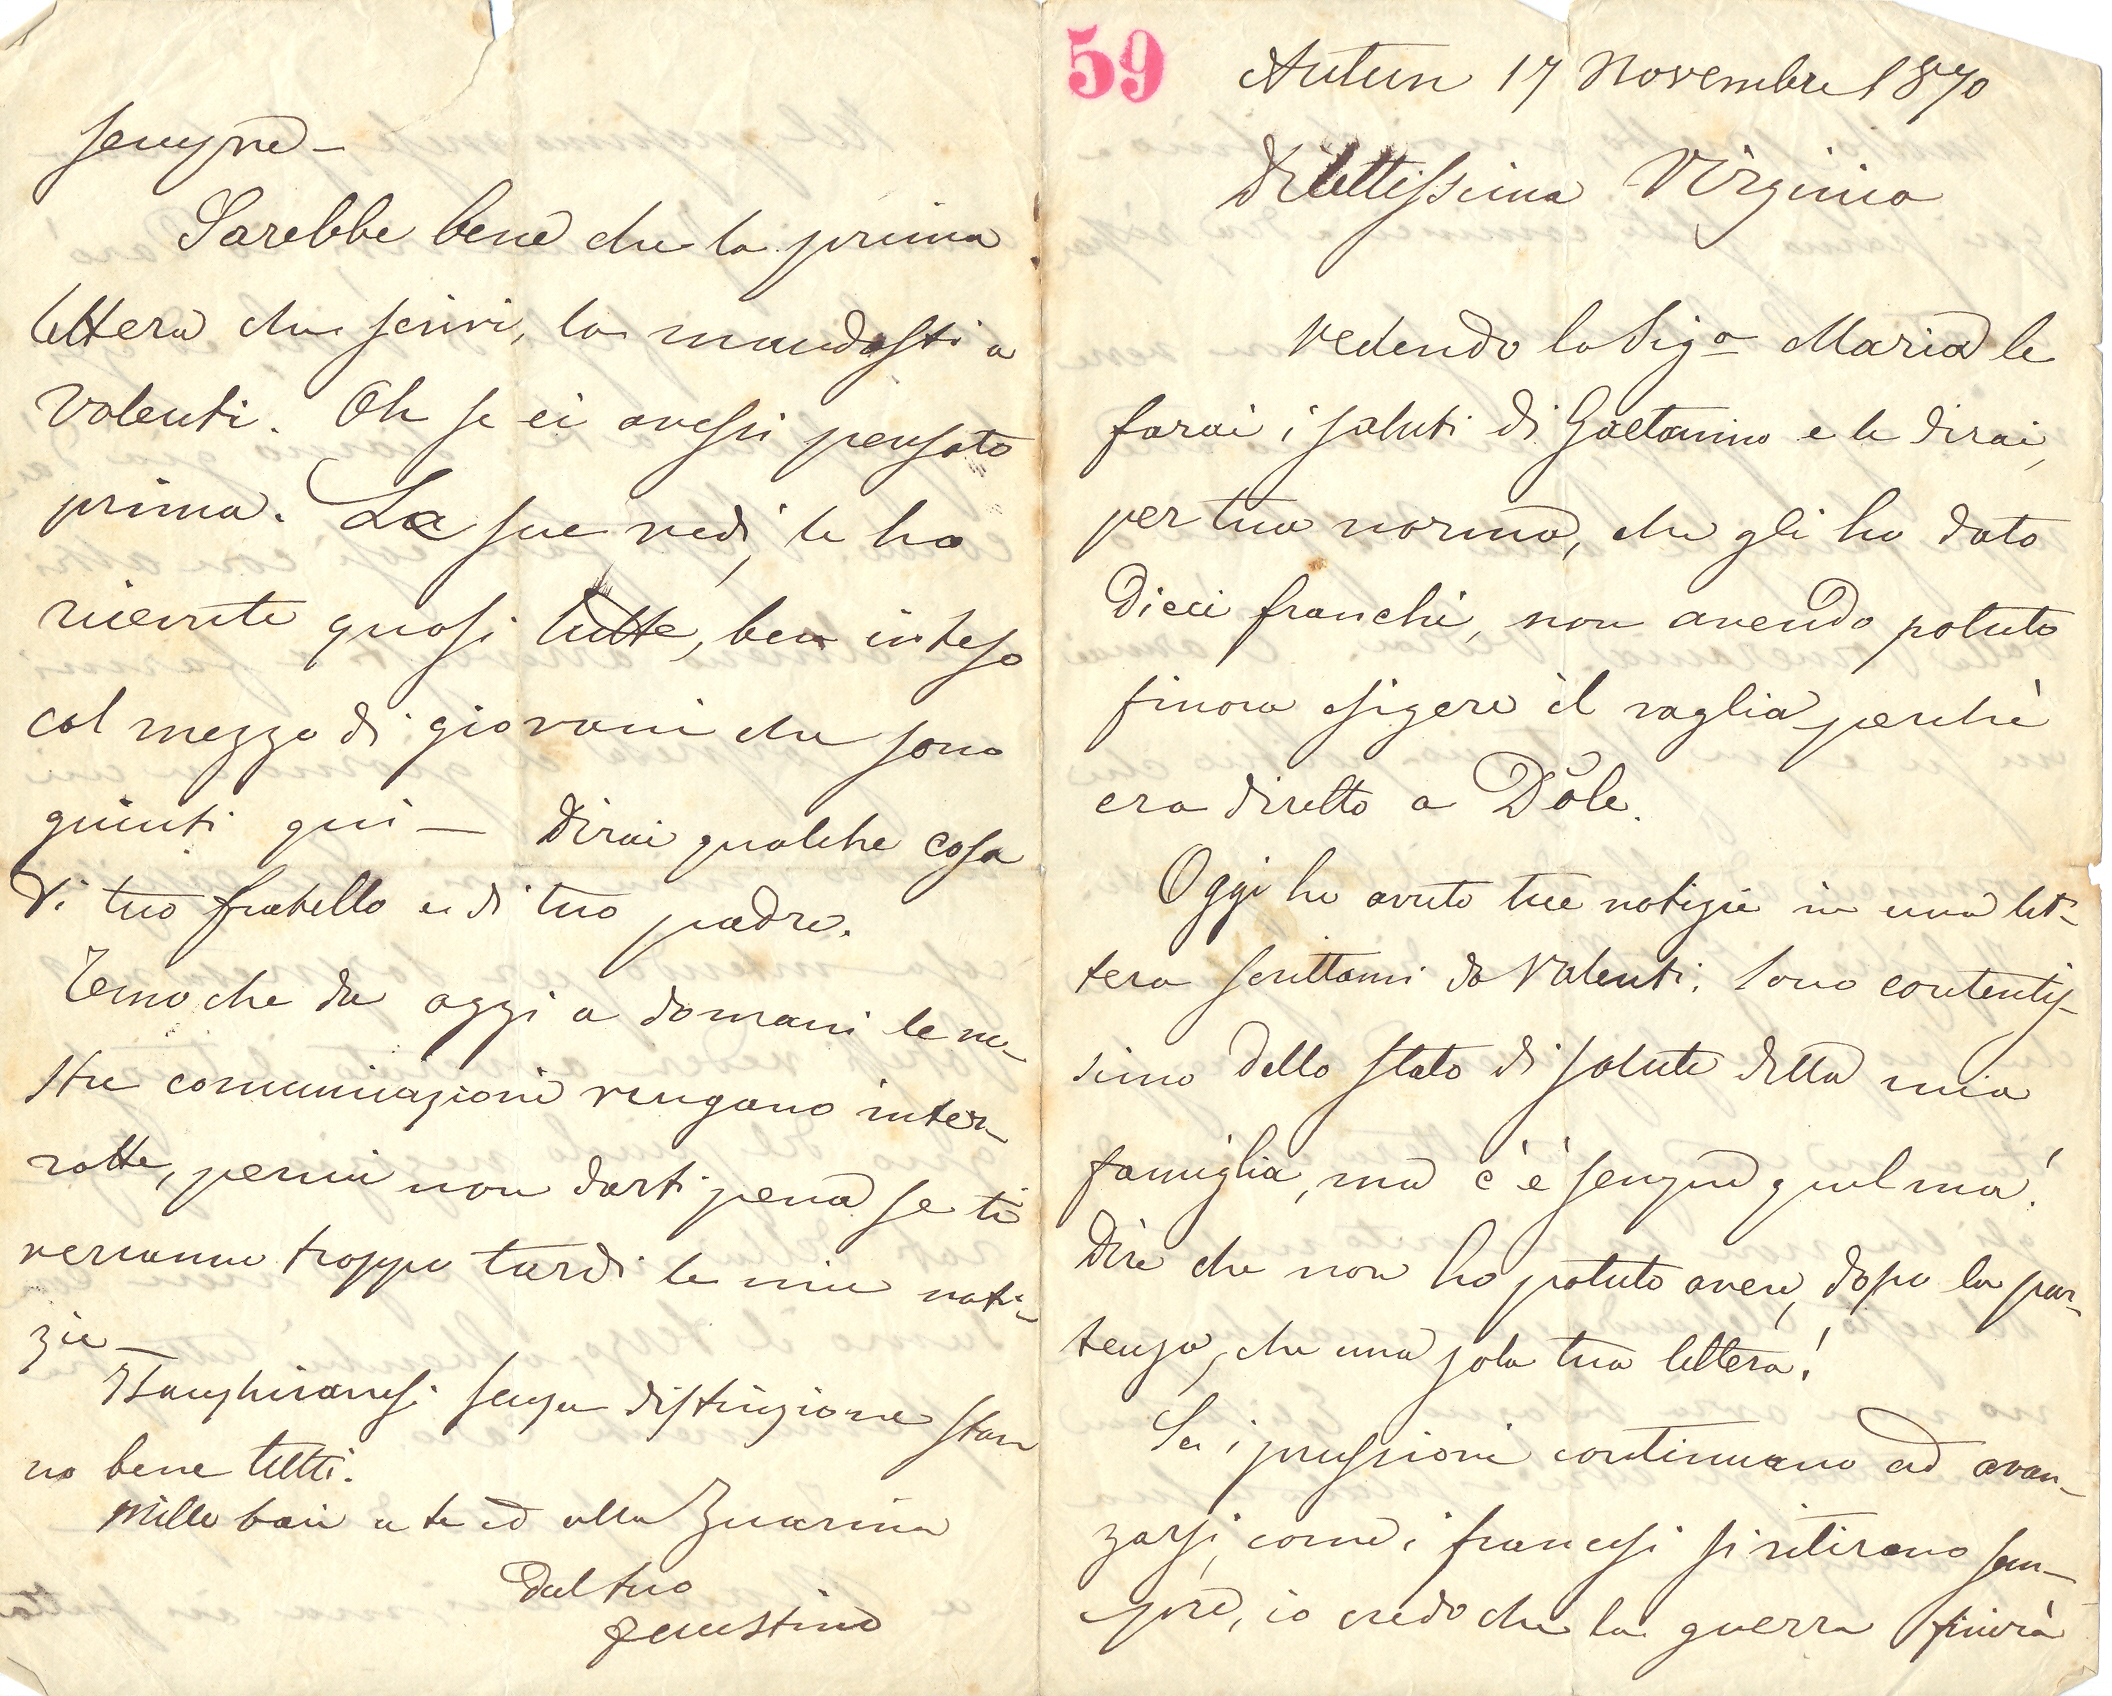 59
Autun 17 Novembre 1870
Dilettissima Virginia
vedendo la Sigᵃ Maria le
farai i saluti di Gaetanino e le dirai,
per tua norma, che gli ho dato
Dieci franchi, non avendo potuto
finora esigere il vaglia perchè
era diretto a Dôle.
Oggi ho avuto tue notizie in una let-
tera scrittami da Valenti. Sono contentis-
simo dello stato di salute della mia
famiglia, ma c'è sempre quel ma!
Dire che non ho potuto avere, dopo la par-
tenza, che una sola tua lettera!
Se i prussiani continuano ad avan-
zarsi, come i francesi si ritirano sem-
pre, io credo che la guerra finirà
sempre –
Sarebbe bene che la prima
lettera che scrivi, la mandasti a
Valenti. Oh se ci avessi pensato
prima. Le sue vedi, le ho
ricevute quasi tutte, ben inteso
col mezzo di giovani che sono
giunti qui — Dirai qualche cosa
di tuo fratello e di tuo padre.
Temo che da oggi a domani le no-
stre comunicazioni vengano inter-
rotte, perciò non darti pena se ti
verranno troppo tardi le mie noti-
zie –
Langhiranesi senza distinzione stan
no bene tutti.
Mille baci a te ed alla Zuarina
Dal tuo
Faustino